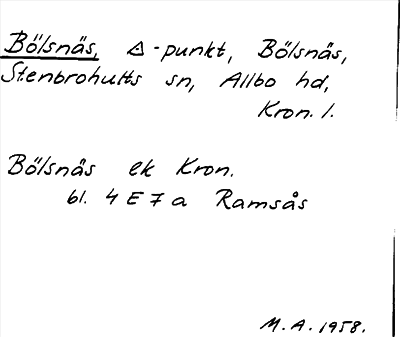 Bölsnäs, △-punkt, Bölsnäs,
Stenbrohults sn, Allbo hd,
Kron. l.
Bölsnäs ek Kron.
bl. 4 E 7 a Ramsås
M. A. 1958.